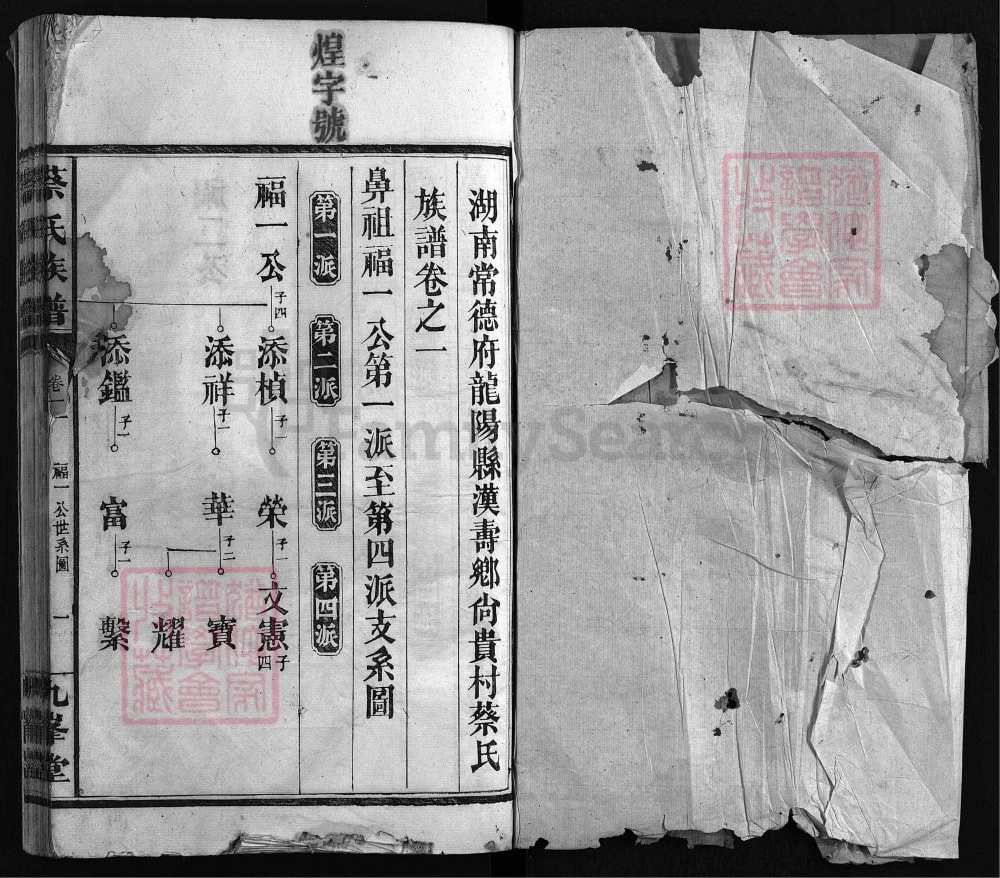 煌字號
湖南常德府龍陽縣漢壽鄉尙貴村蔡氏
族譜卷之一
鼻祖福一公第一派至第四派支系圖
第一派 第二派 第三派 第四派
福一公 子四 添楨 子一 榮 子一 文憲 子四
添祥 子一 華 子二 寶
耀
添鑑 子一 富 子一 繫
蔡氏族譜 卷一 福一公世系圖 一 九峯堂
FamilySearch